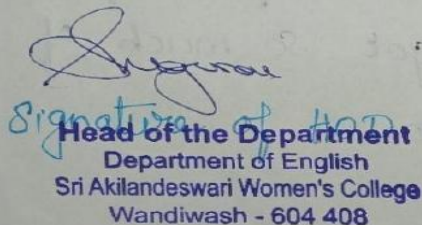 Signature of HOD
Head of the Department
Department of English
Sri Akilandeswari Women's College
Wandiwash - 604 408